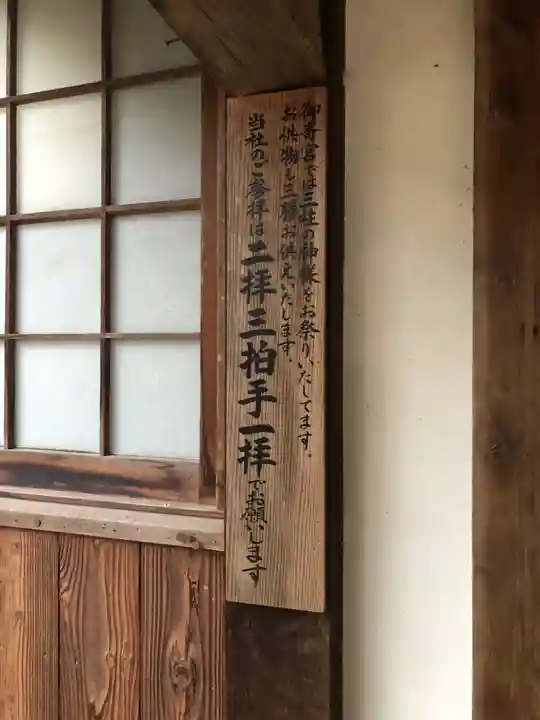 御寄宮では三柱の神様をお祭りいたしてます。
お供物も三膳お供えいたします。
当社のご参拝は二拝三拍手一拝でお願いします